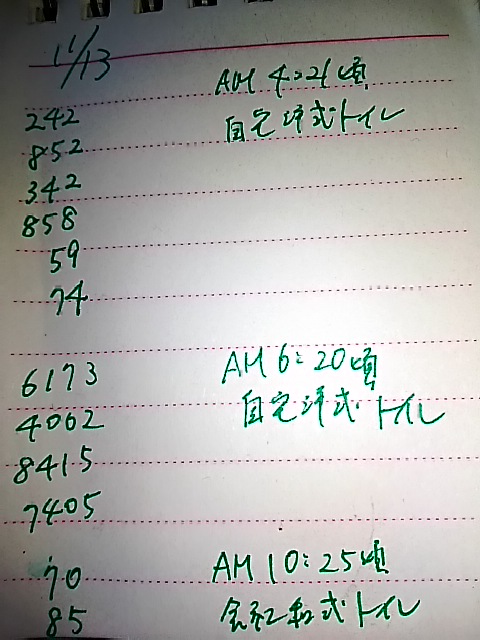 11/13
AM 4:21頃
242
自宅洋式トイレ
852
342
858
59
74
6173
AM 6:20頃
4062
自宅洋式トイレ
8415
7405
70
AM 10:25頃
85
会社和式トイレ